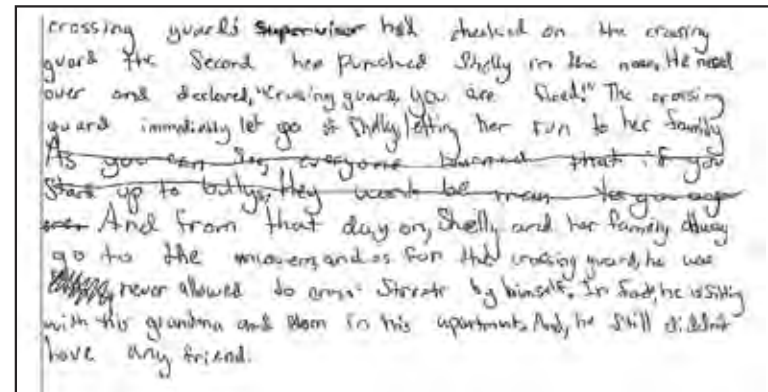 crossing guards supervisor had checked on the crossing
guard the Second her punched Shelly in the nose. He
over and declared, "Crossing guard, you are fired!" The crossing
guard let go of Shelly letting her run to her family
As you can See, everyone learned that if you
Stand up to bullys, they wont be mean to you
And from that day on, Shelly and her family
go to the and as for the crossing guard, he was
never allowed to cross Streets by himself. In fact, he is sitting
with his grandma and Mom in his apartment. And, he Still
have any friend.